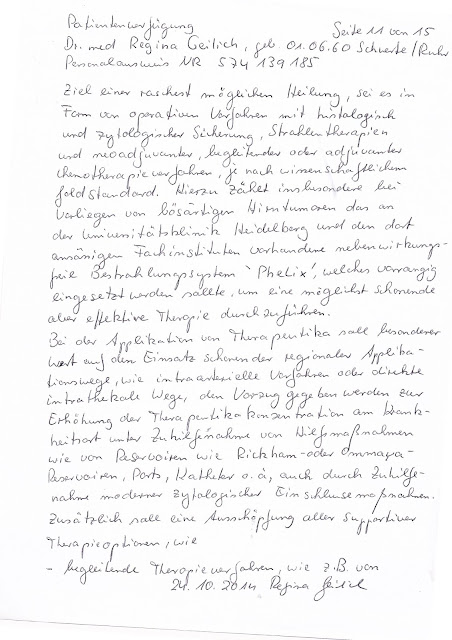 Patientenverfügung Seite 11 von 15
Dr. med Regina Geilich, geb. 01.06.60 Schwerte/Ruhr
Personalausweis NR 574 139 185
Ziel einer raschest möglichen Heilung, sei es in
Form von operativen Verfahren mit histologisch
und zytologischer Sicherung, Strahlentherapien
und neoadjuvanter, begleitender oder adjuvanter
Chemotherapieverfahren, je nach wissenschaftlichem
Goldstandard. Hierzu zählt insbesondere bei
Vorliegen von bösartigen Hirntumoren das an
der Universitätsklinik Heidelberg und den dort
ansässigen Fachinstituten vorhandene nebenwirkungs-
freie Bestrahlungssystem 'Phelix', welches vorrangig
eingesetzt werden sollte, um eine möglichst schonende
aber effektive Therapie durchzuführen.
Bei der Applikation von Therapeutika soll besonderer
Wert auf den Einsatz schonender regionaler Applika-
tionswege, wie intraarterielle Verfahren oder direkte
intrathekale Wege, den Vorzug gegeben werden zur
Erhöhung der Therapeutikakonzentration am Krank-
heitsort unter Zuhilfenahme von Hilfsmaßnahmen
wie von Reservoiren wie Rickham- oder Ommaya-
Reservoiren, Ports, Katheter o.ä, auch durch Zuhilfe-
nahme moderner zytologischer Einschleusmaßnahmen.
Zusätzlich soll eine Ausschöpfung aller supportiver
Therapieoptionen, wie
- begleitende Therapieverfahren, wie z.B. von
24.10.2014 Regina Geilich